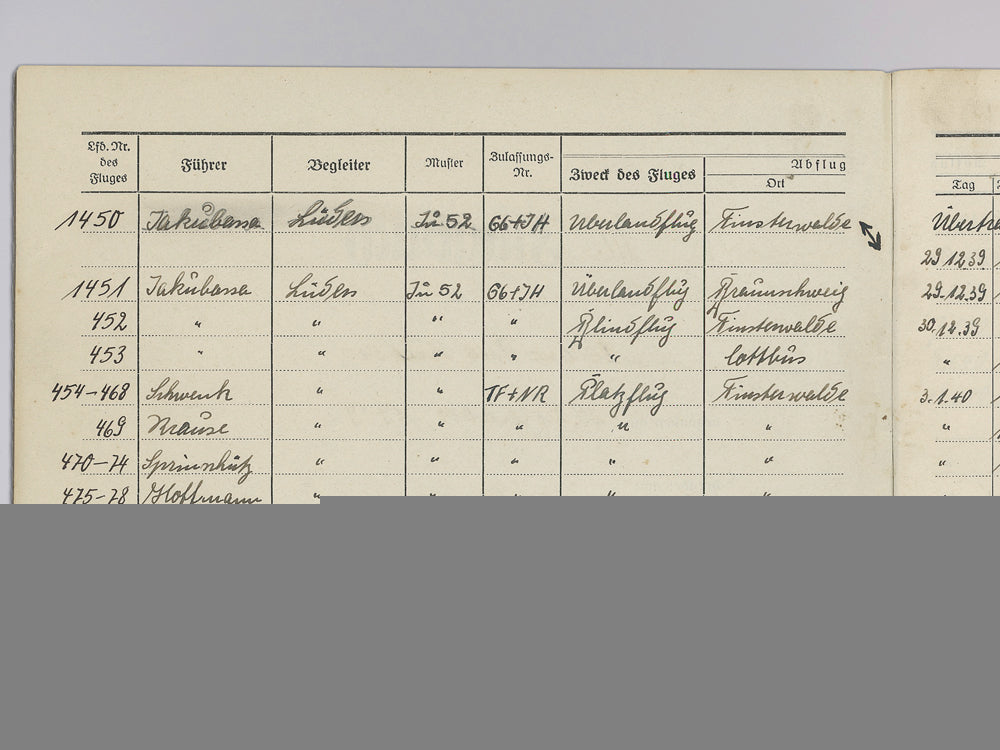 Lfd. Nr. des Fluges Führer Begleiter Muster Zulassungs-Nr. Zweck des Fluges Abflug Ort Tag
1450 Jakubassa Lüders Ju 52 G6+JH Überlandflug Finsterwalde
29.12.39
1451 Jakubassa Lüders Ju 52 G6+JH Überlandflug Braunschweig 29.12.39
452 " " " " Blindflug Finsterwalde 30.12.39
453 " " " " " Cottbus "
454-468 Schwenk " " TF+NR Platzflug Finsterwalde 3.1.40
469 Krause " " " " " "
470-74 " " " " " "
475-78 Hoffmann " " " " "